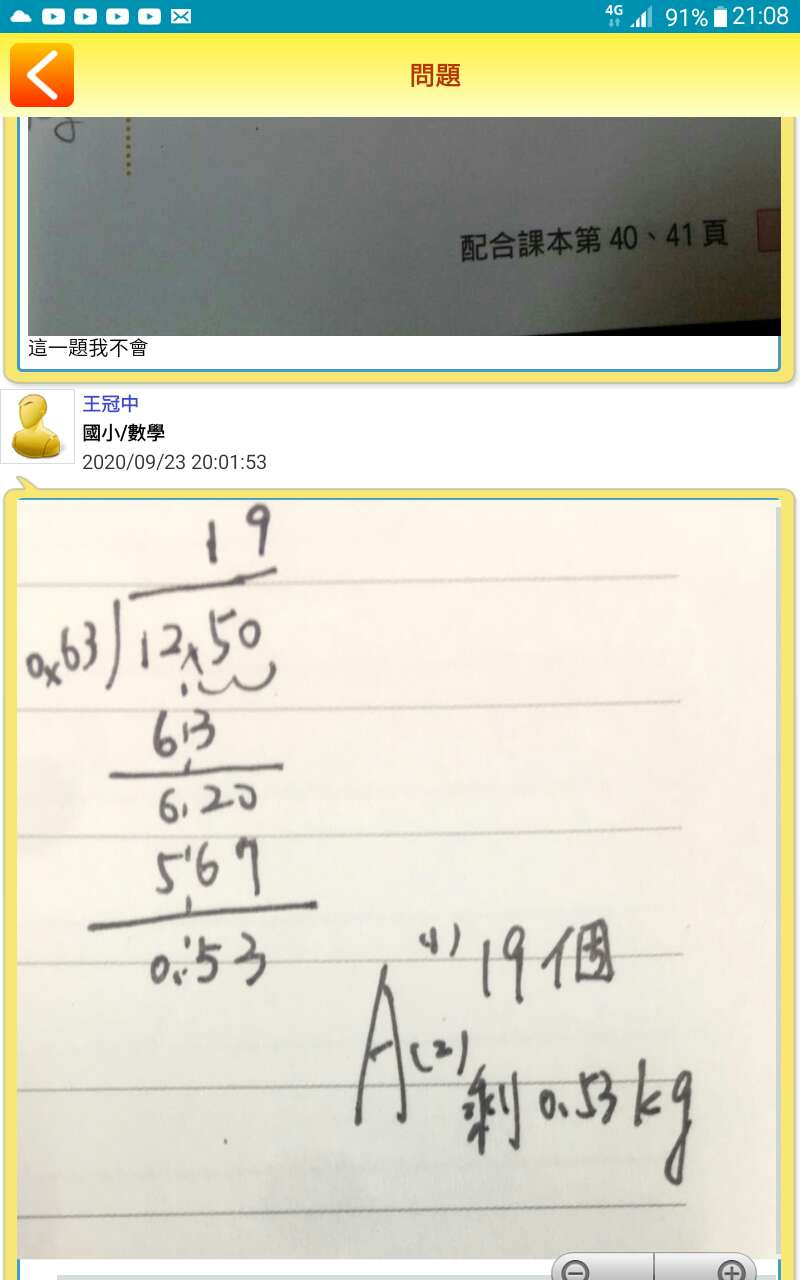 4G 91% 21:08
問題
配合課本第 40、41 頁
這一題我不會
王冠中
國小/數學
2020/09/23 20:01:53
19
0.63 12.50
6.3
6.20
5.67
0.53
A (1) 19個
(2) 剩 0.53 kg